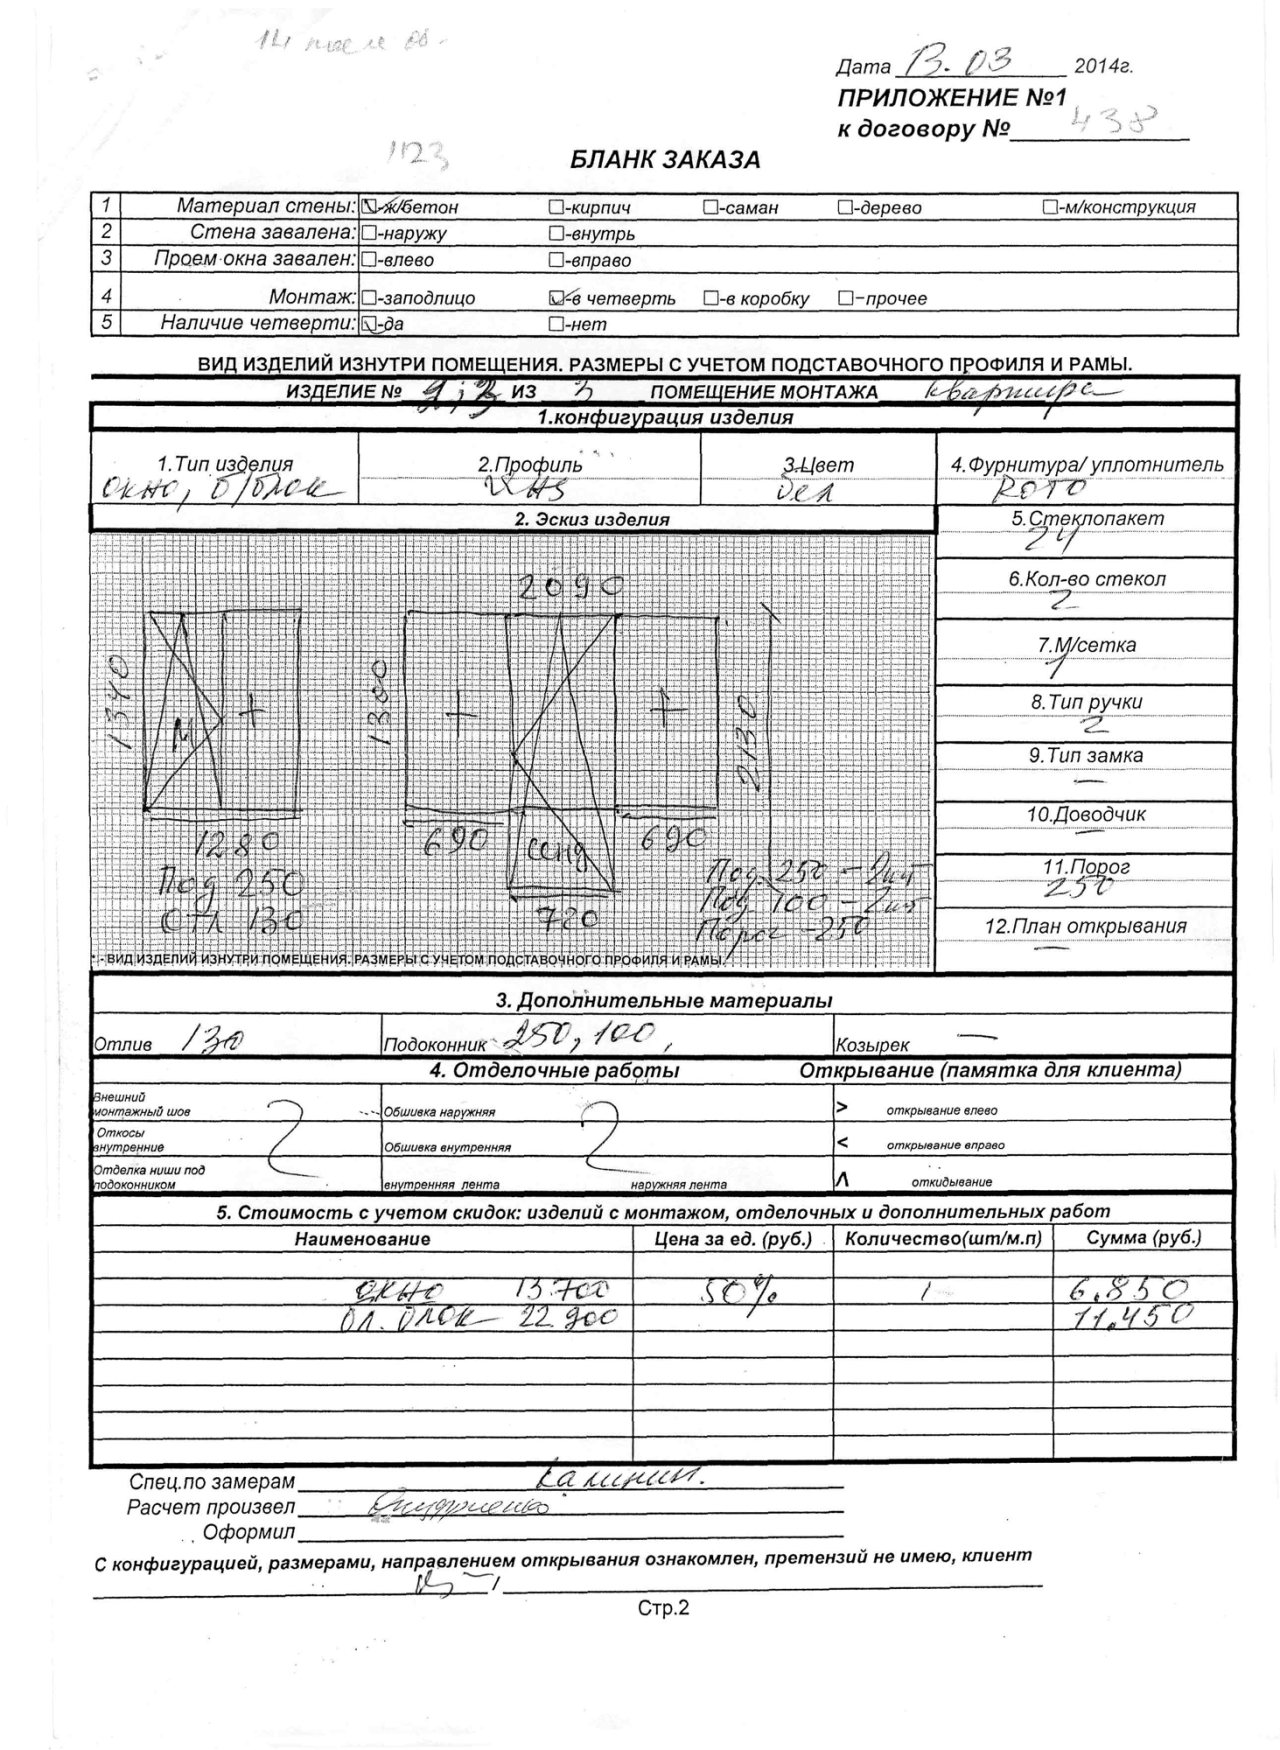 14 после об.
Дата 13.03 2014г.
ПРИЛОЖЕНИЕ №1
к договору № 438
1123
БЛАНК ЗАКАЗА
1 Материал стены: ☑-ж/бетон ☐-кирпич ☐-саман ☐-дерево ☐-м/конструкция
2 Стена завалена: ☐-наружу ☐-внутрь
3 Проем окна завален: ☐-влево ☐-вправо
4 Монтаж: ☐-заподлицо ☑-в четверть ☐-в коробку ☐-прочее
5 Наличие четверти: ☑-да ☐-нет
ВИД ИЗДЕЛИЙ ИЗНУТРИ ПОМЕЩЕНИЯ. РАЗМЕРЫ С УЧЕТОМ ПОДСТАВОЧНОГО ПРОФИЛЯ И РАМЫ.
ИЗДЕЛИЕ № 2;3 ИЗ 3 ПОМЕЩЕНИЕ МОНТАЖА квартира
1.конфигурация изделия
1.Тип изделия 2.Профиль 3.Цвет 4.Фурнитура/ уплотнитель
окно, б/блок бел ROTO
2. Эскиз изделия
5.Стеклопакет
24
6.Кол-во стекол
2
7.М/сетка
1
8.Тип ручки
2
9.Тип замка
—
10.Доводчик
—
11.Порог
250
12.План открывания
—
2090
1340 М + 1300 + + 2130
1280 690 сенд 690
Под 250 Под. 250 - 2шт
Отл 130 720 Под 100 - 2шт
Порог -250
* - ВИД ИЗДЕЛИЙ ИЗНУТРИ ПОМЕЩЕНИЯ. РАЗМЕРЫ С УЧЕТОМ ПОДСТАВОЧНОГО ПРОФИЛЯ И РАМЫ.
3. Дополнительные материалы
Отлив 130 Подоконник 250, 100, Козырек —
4. Отделочные работы Открывание (памятка для клиента)
Внешний
монтажный шов Обшивка наружняя > открывание влево
Откосы
внутренние Обшивка внутренняя < открывание вправо
Отделка ниши под
подоконником внутренняя лента наружняя лента Λ откидывание
5. Стоимость с учетом скидок: изделий с монтажом, отделочных и дополнительных работ
Наименование Цена за ед. (руб.) Количество(шт/м.п) Сумма (руб.)
окно 13.700 50% 1 6.850
бл. блок 22.900 11.450
Спец.по замерам Калинин.
Расчет произвел
Оформил
С конфигурацией, размерами, направлением открывания ознакомлен, претензий не имею, клиент
Стр.2